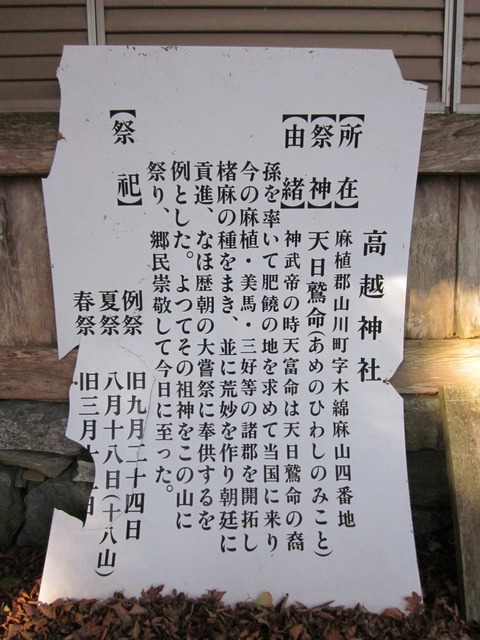 高越神社
【所在】麻植郡山川町字木綿麻山四番地
【祭神】天日鷲命あめのひわしのみこと)
【由緒】神武帝の時天富命は天日鷲命の裔
孫を率いて肥饒の地を求めて当国に来り
今の麻植・美馬・三好等の諸郡を開拓し
楮麻の種をまき、並に荒妙を作り朝廷に
貢進、なほ歴朝の大嘗祭に奉供するを
例とした。よつてその祖神をこの山に
祭り、郷民崇敬して今日に至った。
【祭祀】例祭 旧九月二十四日
夏祭 八月十八日(十八山)
春祭 旧三月十 日